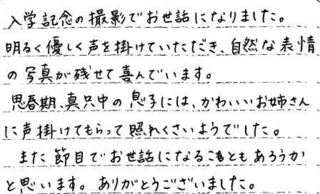 入学記念の撮影でお世話になりました。
明るく優しく声を掛けていただき、自然な表情
の写真が残せて喜んでいます。
思春期真只中の息子には、かわいいお姉さん
に声掛けてもらって照れくさいようでした。
また節目でお世話になることもあろうか
と思います。ありがとうございました。